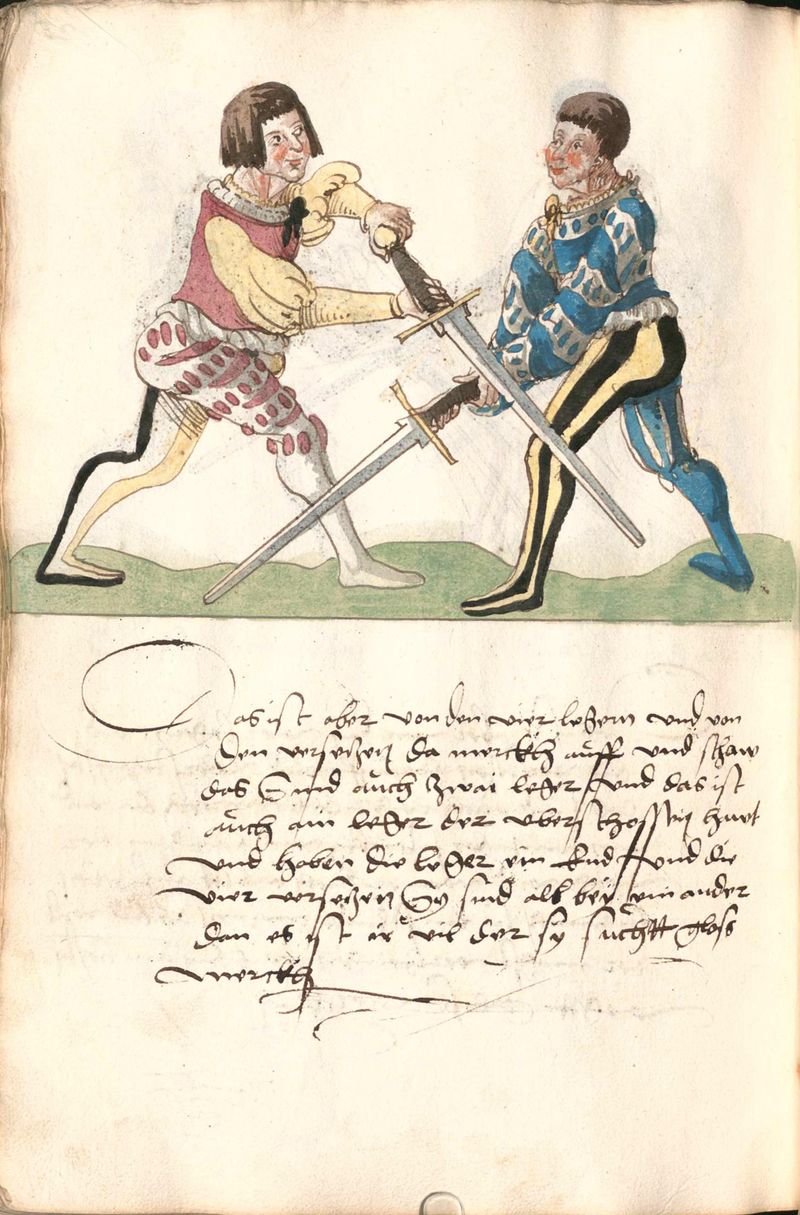 Das ist aber von den vier legern vnd von
den versetzen da merckh auff vnd schaw
das Sind auch zwai leger vnd das ist
auch ain leger der vberschossen hut
vnd haben die leger ein End vnd die
vier versetzen Sy sind all bey ein ander
dan es ist ir vil der sy sucht gloss
merckh